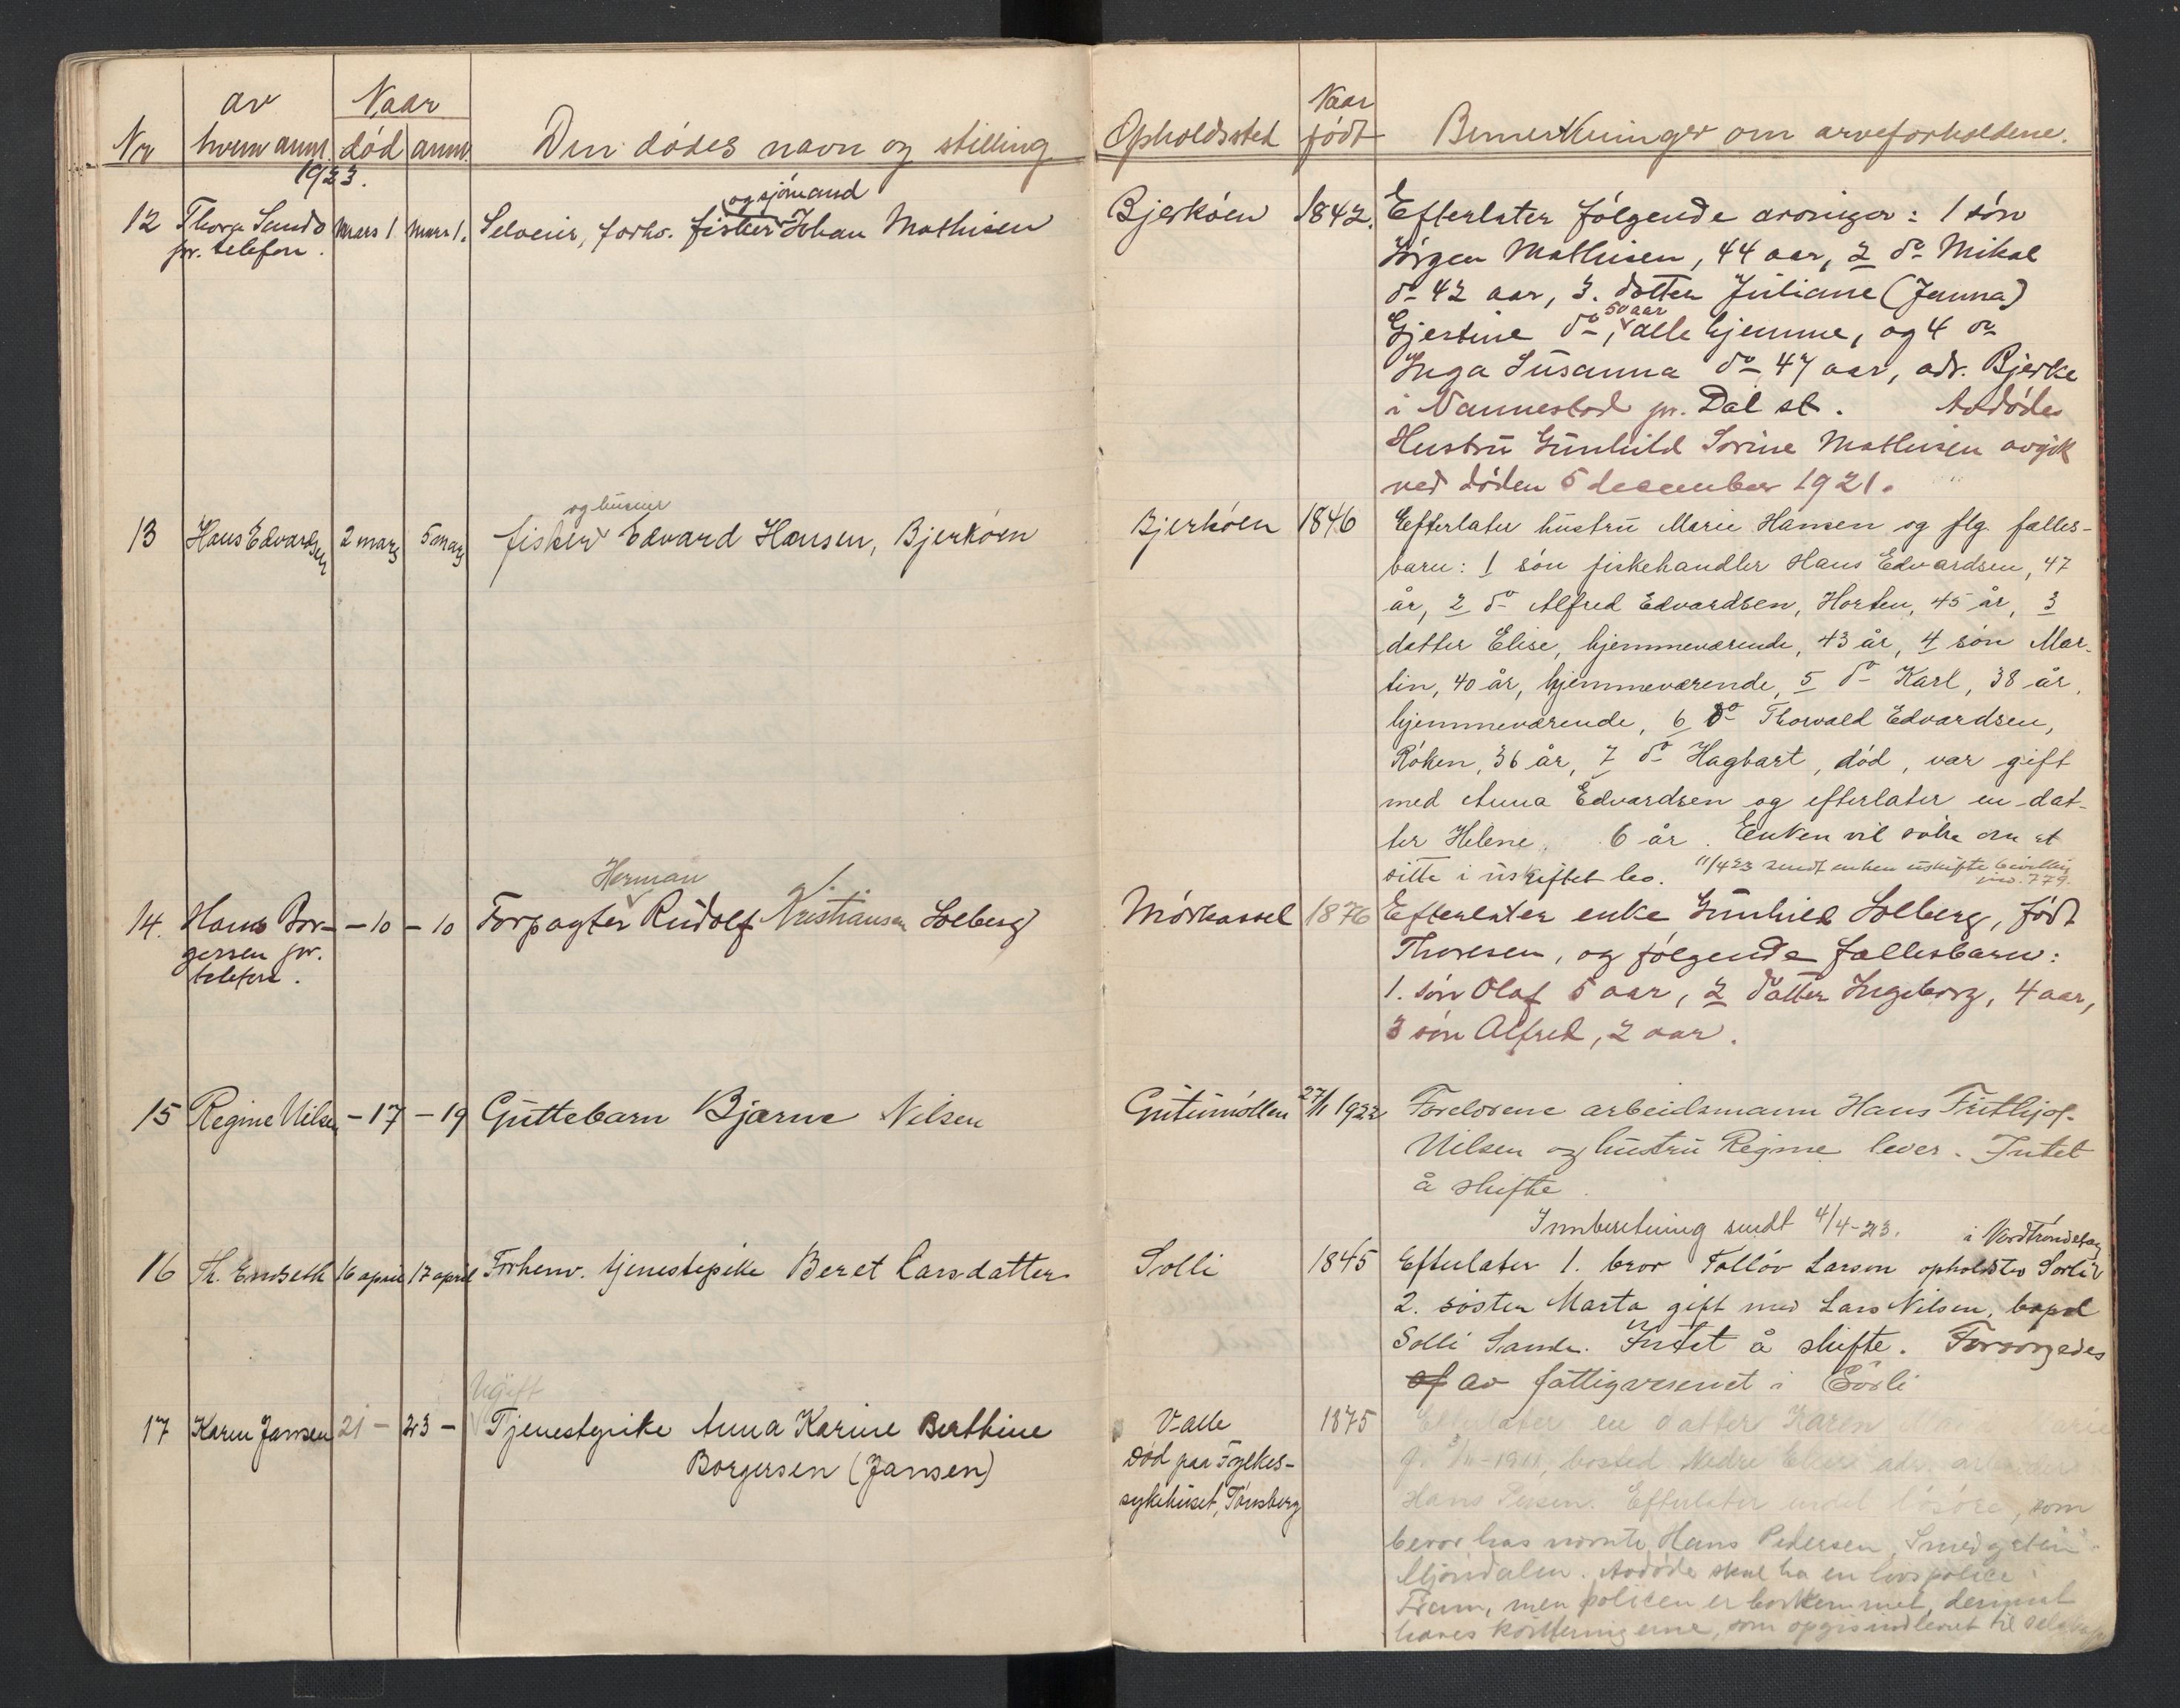 Nr
av
hvem anm.
Naar
død
anm.
Den dødes navn og stilling
Opholdssted
Naar
født
Bemerkninger om arveforholdene.
1923.
12
Thora Sando
pr. telefon.
mars 1
mars 1.
og sjømand
Selveier, forhv. fisker Johan Mathisen
Bjerkøen
1842.
Efterlater følgende arvinger: 1 søn
Jørgen Mathisen, 44 aar, 2 do Mikal
do 42 aar, 3. datter Juliane (Janna)
50 aar
Gjertine do, alle hjemme, og 4 do
Inga Susanna do 47 aar, adr. Bjerke
i Nannestad pr. Dal st. Avdødes
Hustru Gunhild Sorine Mathisen avgik
ved døden 5 desember 1921.
13
Hans Edvardsen
2 mars
5 mars
og huseier
fisker Edvard Hansen, Bjerkøen
Bjerkøen
1846
Efterlater hustru Marie Hansen og flg. felles-
barn: 1 søn fiskehandler Hans Edvardsen, 47
år, 2 do Alfred Edvardsen, Horten, 45 år, 3
datter Elise, hjemmeværende, 43 år, 4 søn Mar-
tin, 40 år, hjemmeværende, 5 do Karl, 38 år,
hjemmeværende, 6 do Thorvald Edvardsen,
Røken, 36 år, 7 do Hagbart, død, var gift
med Anna Edvardsen og efterlater en dat-
ter Helene, 6 år. Enken vil søke om at
sitte i uskiftet bo. 11/4 23 sendt enken uskiftebevilling
jno. 779.
14.
Hans Bor-
gersen pr.
telefon.
- 10
- 10
Herman
Forpagter Rudolf Kristiansen Solberg
Mørkassel
1876
Efterlater enke Gunhild Solberg, født
Thoresen, og følgende fællesbarn:
1. søn Olaf 5 aar, 2 datter Ingeborg, 4 aar,
3 søn Alfred, 2 aar.
15
Regine Nilsen
- 17
- 19
Guttebarn Bjarne Nilsen
Gutumøllen
27/1 1922
Foreldrene arbeidsmann Hans Frithjof
Nilsen og hustru Regine lever. Intet
å skifte.
Innberetning sendt 4/4-23.
16
Th. Enbseth
16 april
17 april
Forhenv. tjenestepike Beret Larsdatter
Solli
1845
i Nordtrøndelag
Efterlater 1. bror Folløv Larsen opholdsted Sørli
2. søster Marta gift med Lars Nilsen, bopel
Solli Sande. Intet å skifte. Forsørgedes
af av fattigvesenet i Sørli
17
Karen Jansen
21 -
23 -
Ugift
Tjenestepike Anna Karine Berthine
Borgersen (Jansen)
Valle
Død paa Fylkes-
sykehuset, Tønsberg
1875
Efterlater en datter Karen
1911, bosted Nedre
Hans Efterlater løsøre, som
beror hos nevnte Hans Pedersen,
Mjøndalen. Avdøde skal ha en livspolice i
Fram, men policen er bortkommet, derimot
haves kvitteringerne, som opgis indlevert til